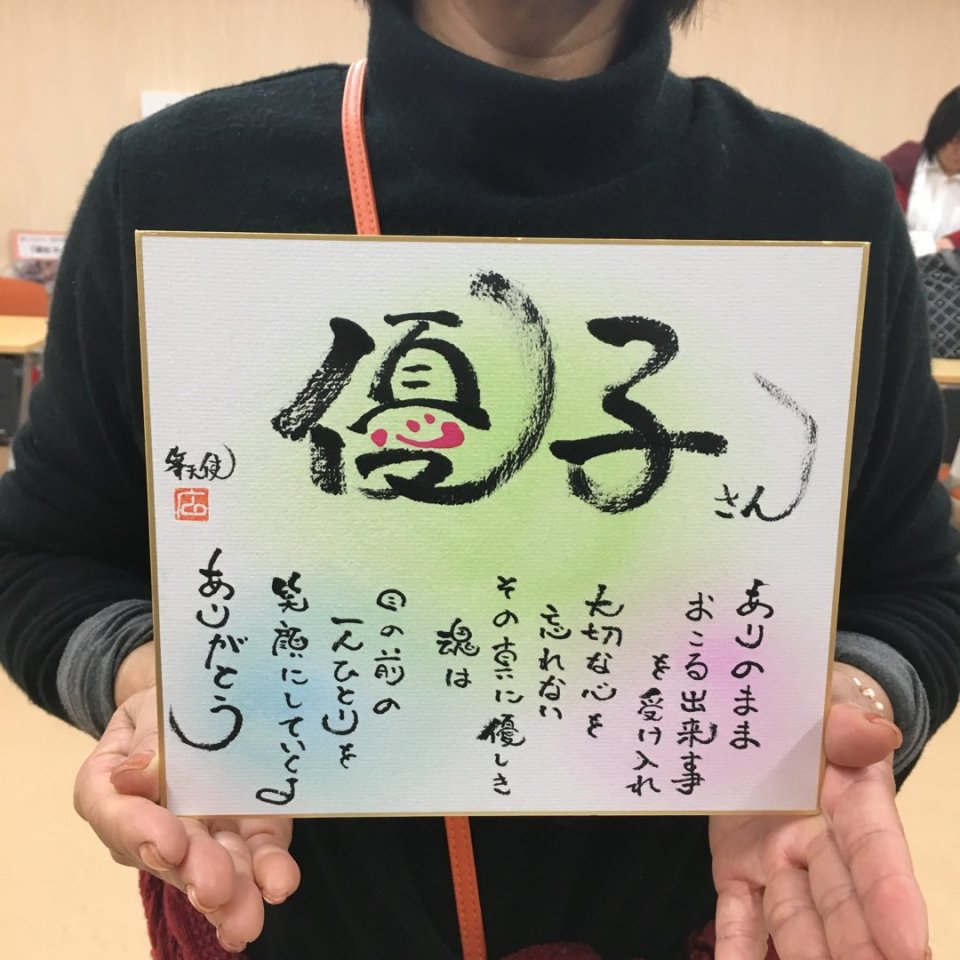 優子
さん
ありのまま
おこる出来事
を受け入れ
大切な心を
忘れない
その真に優しき
魂は
目の前の
一人ひとりを
笑顔にしていくよ
ありがとう
筆天使